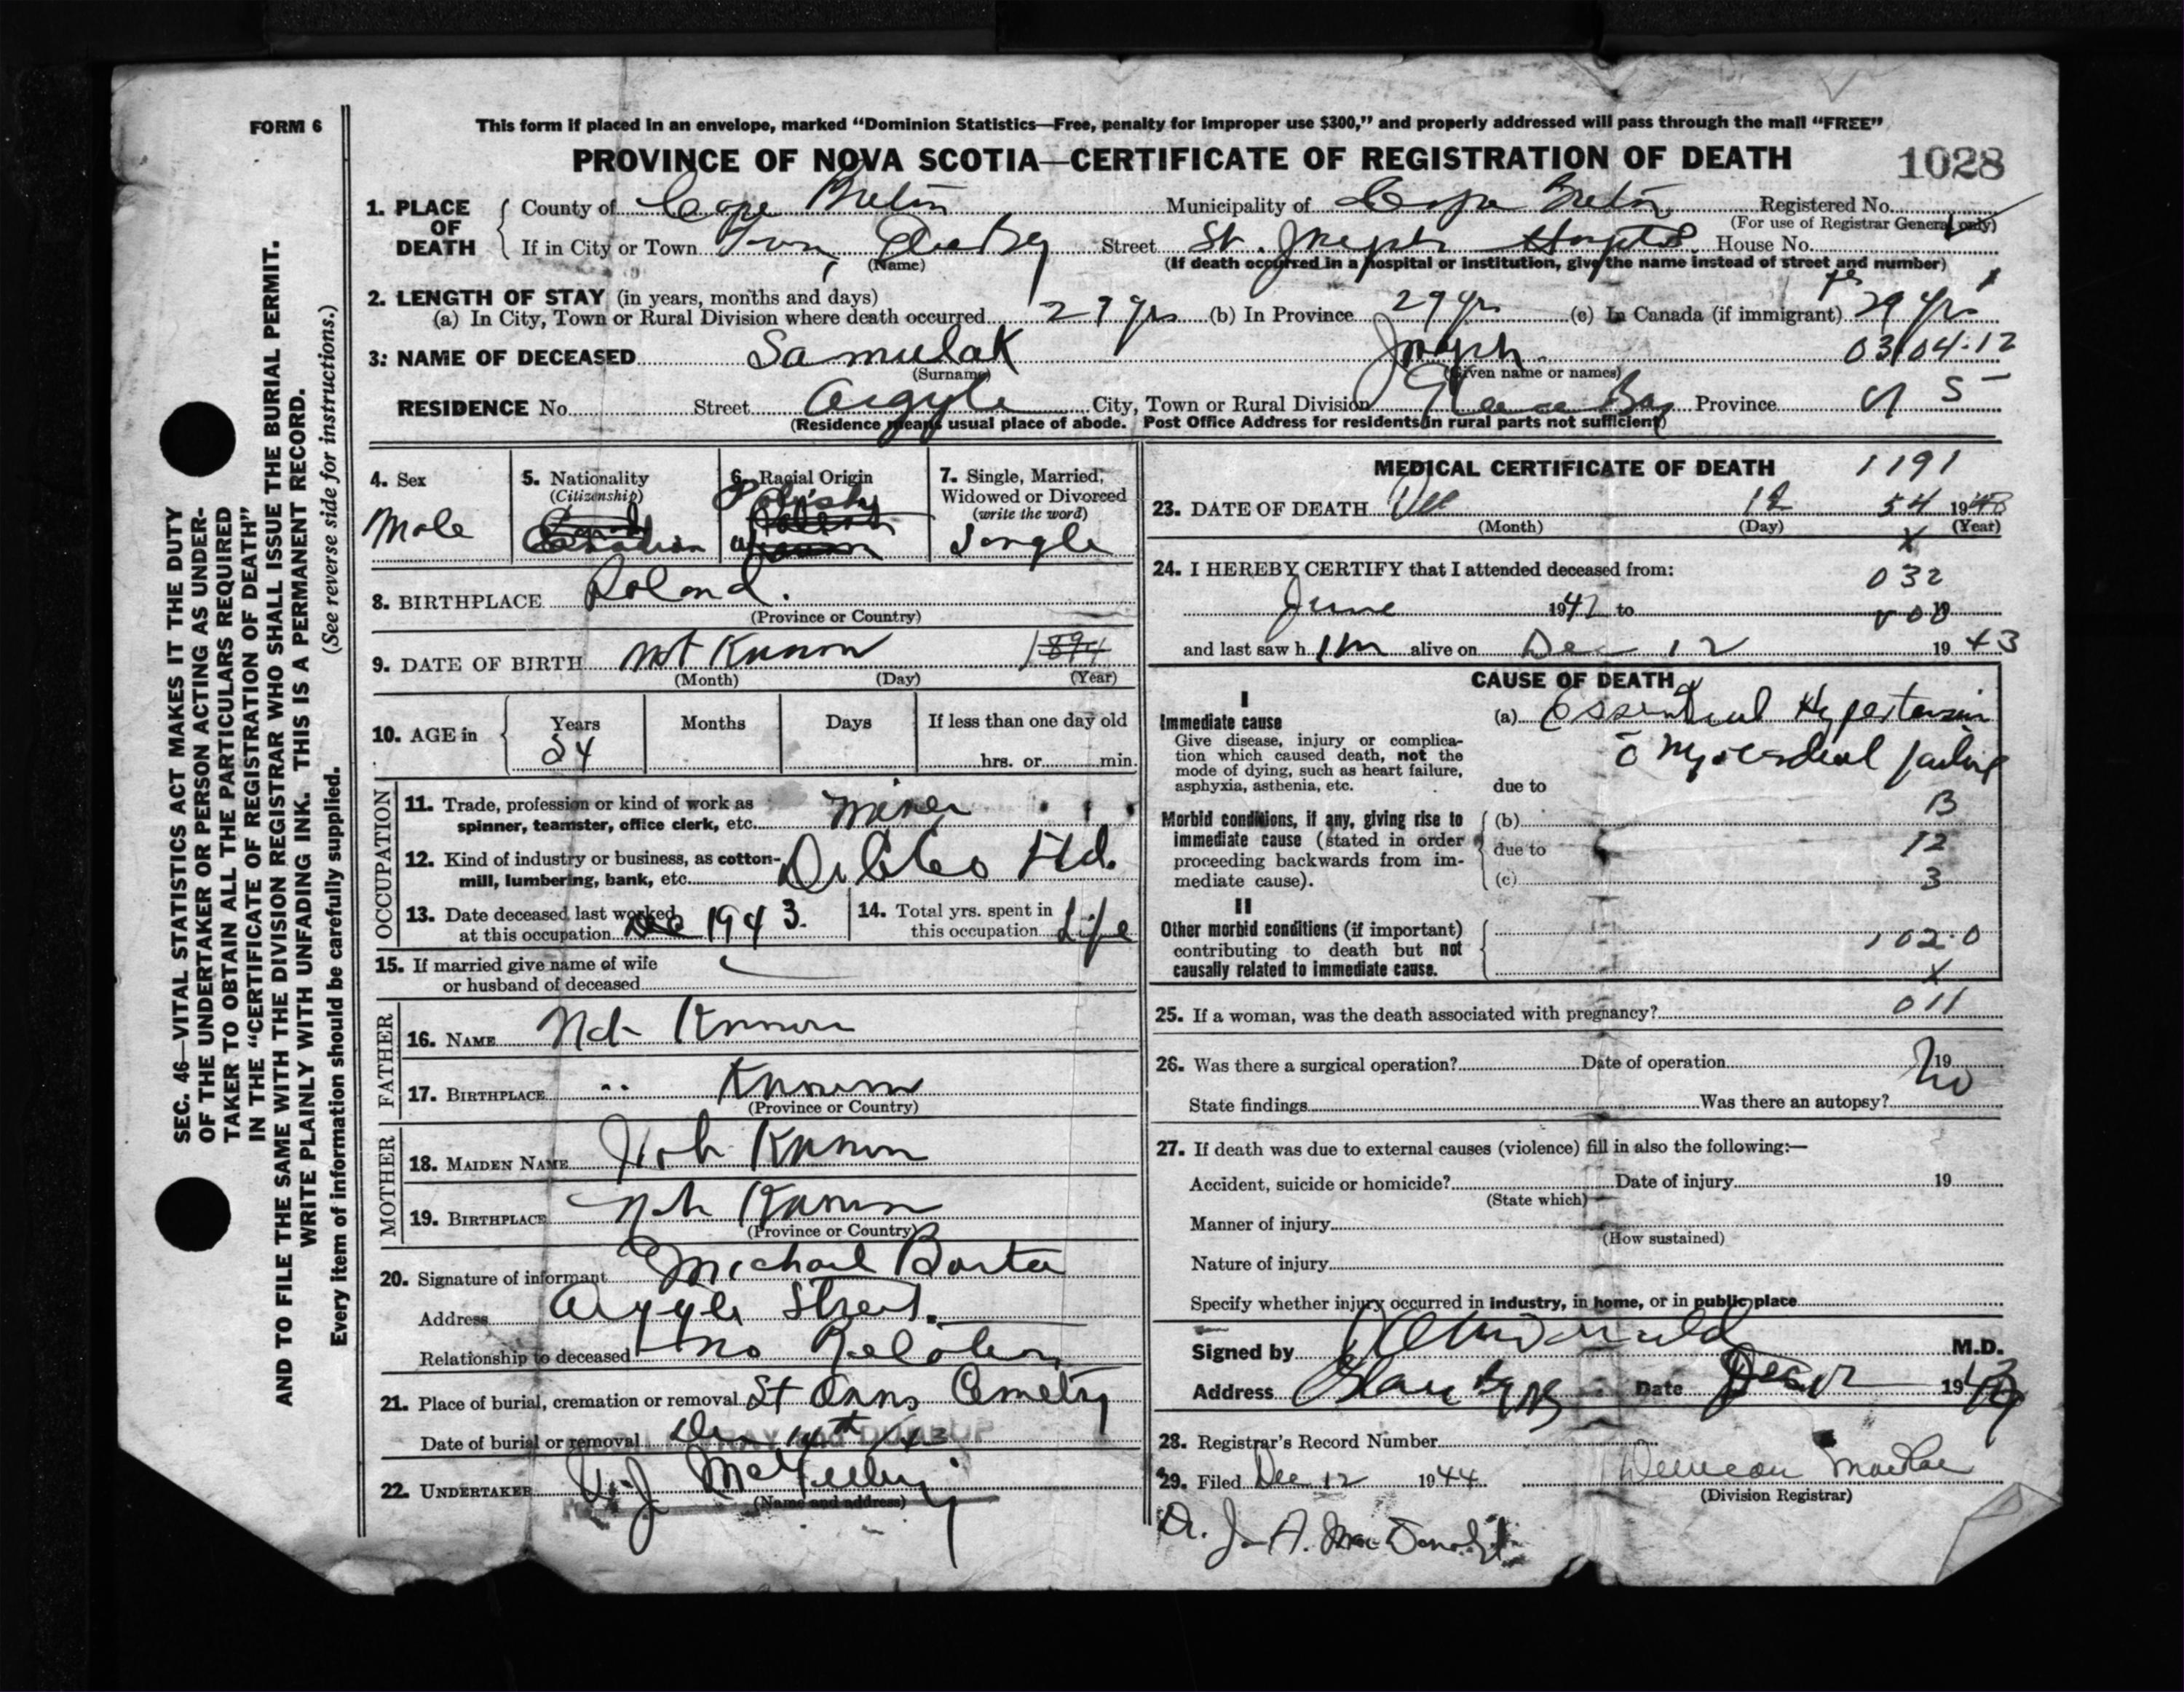 FORM 6
This form if placed in an envelope, marked “Dominion Statistics—Free, penalty for improper use $300,” and properly addressed will pass through the mail “FREE”
PROVINCE OF NOVA SCOTIA—CERTIFICATE OF REGISTRATION OF DEATH 1028
1. PLACE OF DEATH
County of Cape Breton Municipality of Cape Breton Registered No.
(For use of Registrar General only)
If in City or Town Town Glace Bay Street St. Joseph Hospital House No.
(Name) (If death occurred in a hospital or institution, give the name instead of street and number)
2. LENGTH OF STAY (in years, months and days)
(a) In City, Town or Rural Division where death occurred 29 yrs (b) In Province 29 yrs (c) In Canada (if immigrant) 29 yrs
3: NAME OF DECEASED Samulak Joseph 03 04 12
(Surname) (Given name or names)
RESIDENCE No. Street Argyle City, Town or Rural Division Glace Bay Province N S
(Residence means usual place of abode. Post Office Address for residents in rural parts not sufficient)
4. Sex
Male
5. Nationality
(Citizenship)
Canadian
6. Racial Origin
Polish
7. Single, Married, Widowed or Divorced
(write the word)
Single
8. BIRTHPLACE Poland.
(Province or Country)
9. DATE OF BIRTH not Known 1894
(Month) (Day) (Year)
10. AGE in
Years Months Days If less than one day old
54 hrs. or min.
OCCUPATION
11. Trade, profession or kind of work as
spinner, teamster, office clerk, etc. miner
12. Kind of industry or business, as cotton-
mill, lumbering, bank, etc. Ltd.
13. Date deceased last worked
at this occupation Dec 1943.
14. Total yrs. spent in
this occupation Life
15. If married give name of wife
or husband of deceased
FATHER
16. NAME Not Known
17. BIRTHPLACE " Known
(Province or Country)
MOTHER
18. MAIDEN NAME Not Known
19. BIRTHPLACE Not Known
(Province or Country)
20. Signature of informant Michael
Address Argyle Street.
Relationship to deceased no Relation
21. Place of burial, cremation or removal St Anns Cemetry
Date of burial or removal Dec 14th /43
22. UNDERTAKER
(Name and address)
MEDICAL CERTIFICATE OF DEATH 1191
23. DATE OF DEATH Dec 12 54 1943
(Month) (Day) (Year)
X
24. I HEREBY CERTIFY that I attended deceased from: 032
June 1942 to 19
and last saw him alive on Dec 12 1943
CAUSE OF DEATH
I
Immediate cause
Give disease, injury or complication which caused death, not the mode of dying, such as heart failure, asphyxia, asthenia, etc.
(a) Essential Hypertension
c̄ Myocardial failure
due to
Morbid conditions, if any, giving rise to immediate cause (stated in order proceeding backwards from immediate cause).
(b) B
due to 12
(c) 3
II
Other morbid conditions (if important) contributing to death but not causally related to immediate cause.
102.0
X
25. If a woman, was the death associated with pregnancy? 011
26. Was there a surgical operation? Date of operation 19
State findings Was there an autopsy? no
27. If death was due to external causes (violence) fill in also the following:—
Accident, suicide or homicide? Date of injury 19
(State which)
Manner of injury
(How sustained)
Nature of injury
Specify whether injury occurred in industry, in home, or in public place
Signed by M.D.
Address Glace Bay NS Date Dec 12 1943
28. Registrar's Record Number
29. Filed Dec 12 1944 Duncan MacRae
(Division Registrar)
Dr. J. A. MacDonald
SEC. 46—VITAL STATISTICS ACT MAKES IT THE DUTY
OF THE UNDERTAKER OR PERSON ACTING AS UNDER-
TAKER TO OBTAIN ALL THE PARTICULARS REQUIRED
IN THE “CERTIFICATE OF REGISTRATION OF DEATH”
AND TO FILE THE SAME WITH THE DIVISION REGISTRAR WHO SHALL ISSUE THE BURIAL PERMIT.
WRITE PLAINLY WITH UNFADING INK. THIS IS A PERMANENT RECORD.
Every item of information should be carefully supplied. (See reverse side for instructions.)